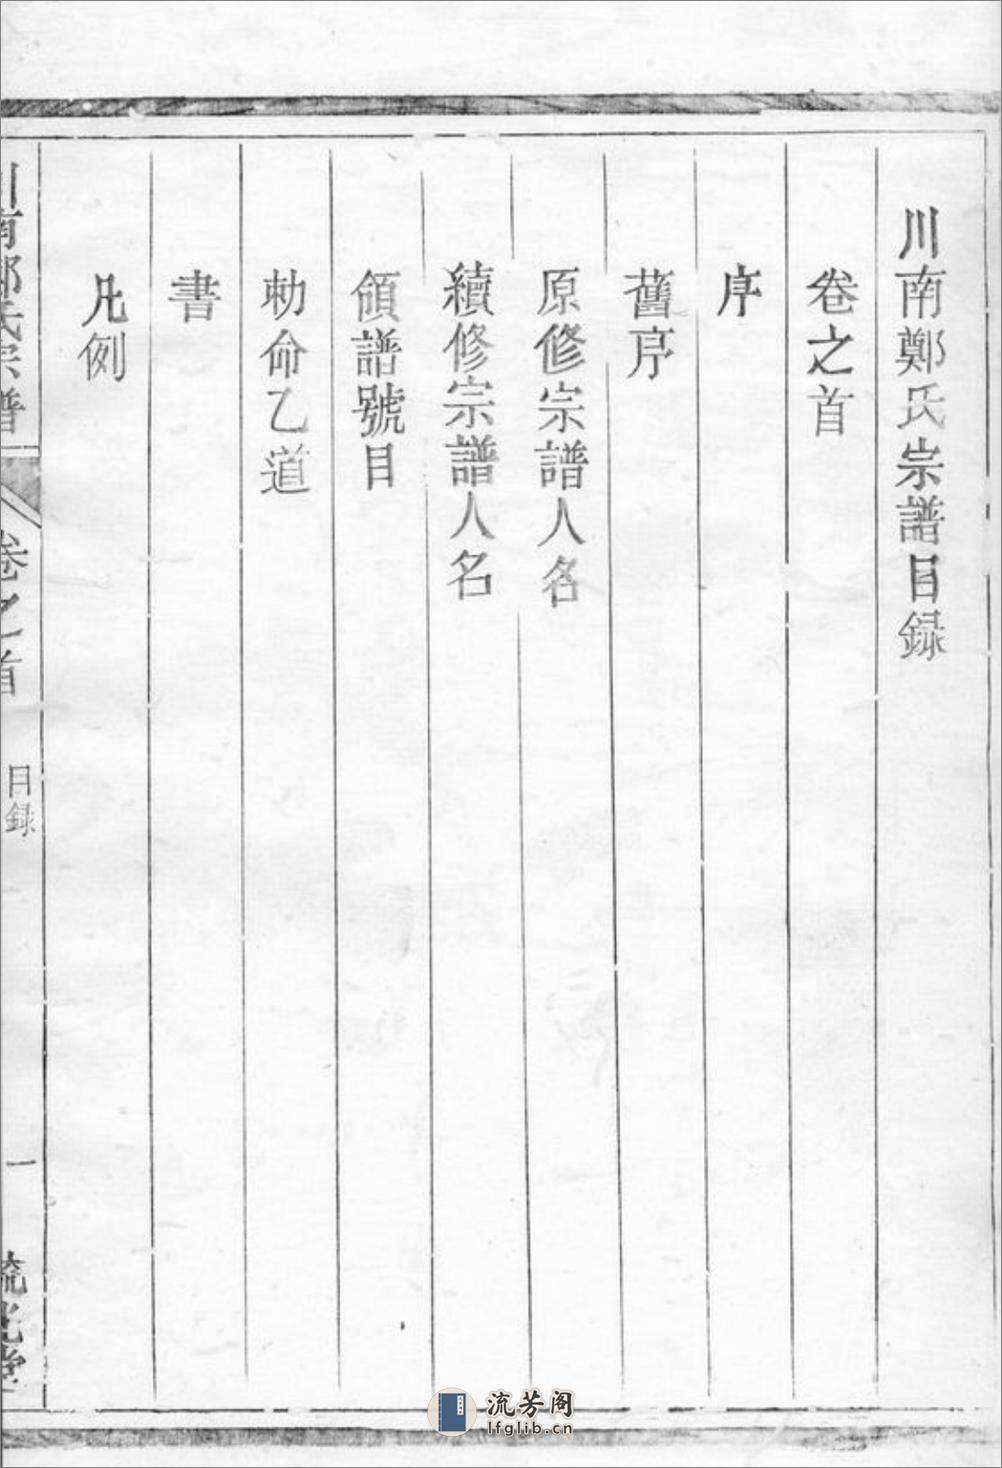 川南鄭氏宗譜目録
卷之首
序
舊序
原修宗譜人名
續修宗譜人名
領譜號目
勅命乙道
書
凡例
川南鄭氏宗譜
卷之首
目録
一
流芳阁
lfglib.cn